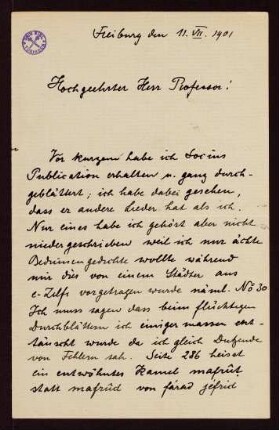 Freiburg den 11. VII. 1901
Hochgeehrter Herr Professor!
Vor kurzem habe ich Socins
Publication erhalten u. ganz durch-
geblättert; ich habe dabei gesehen,
dass er andere Lieder hat als ich.
Nur eines habe ich gehört aber nicht
niedergeschrieben weil ich nur ächte
Beduinengedichte wollte während
mir dies von einem Städter aus
ez-Zilfi vorgetragen wurde näml. No 30
Ich muss sagen dass beim flüchtigen
Durchblättern ich einigermassen ent-
täuscht wurde da ich gleich Dutzende
von Fehlern sah. Seite 286 heisst
ein entwöhntes Kameel mafrût
statt mafrûd von fárad jefrid